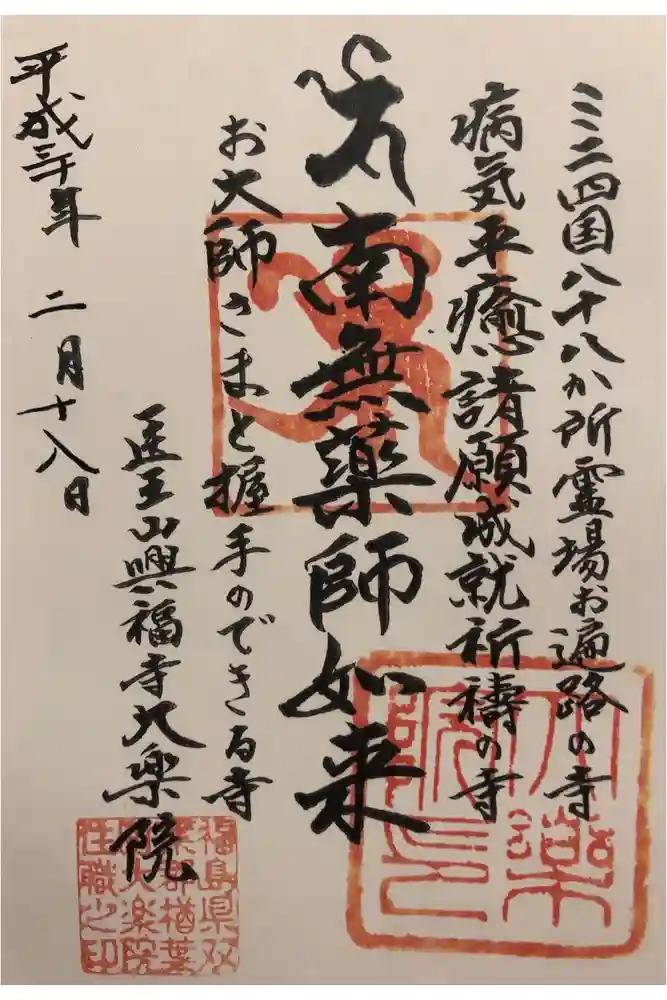 ミニ四国八十八か所霊場お遍路の寺
病気平癒諸願成就祈祷の寺
南無薬師如来
お大師さまと握手のできる寺
医王山興福寺大楽院
平成三十年 二月十八日
大楽
院印
福島県双
葉郡楢葉
町大楽院
住職之印